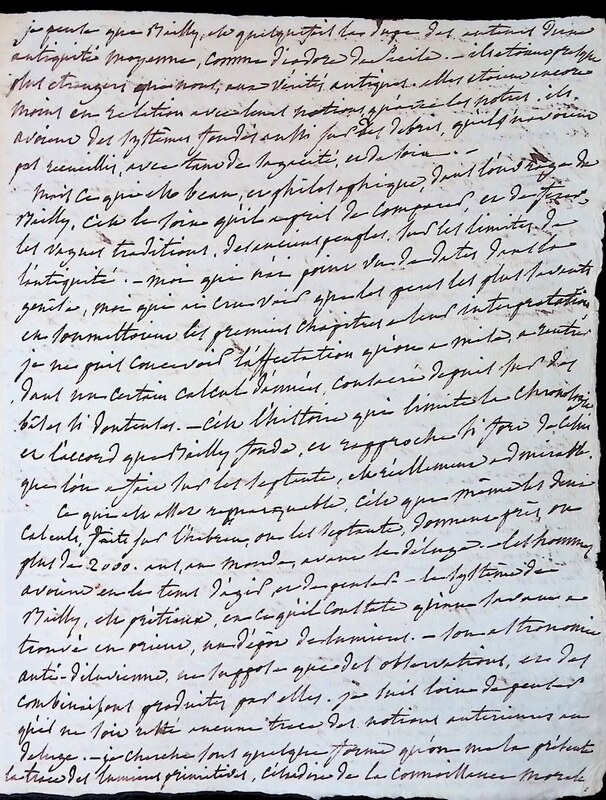 je pense que Bailly, est quelquefois la dupe des auteurs d'une
antiquité moyenne, comme diodore de Sicile. - ils etoient presque
plus etrangers que nous, aux vérités antiques. elles etoient encore
moins en relation avec leurs notions, qu'avec les notres. ils
avoient des systèmes fondés aussi sur des debris, quils n'avoient
pas recueillis, avec tant de sagacité, et de soin. -
mais ce qui est beau, et philosophique, dans l'ouvrage de
Bailly, c'est le soin qu'il a pris de comparer, et de
les vagues traditions, des anciens peuples, sur les limites de
l'antiquité. - moi qui n'ai point vu de dates dans la
genèse, moi qui ai cru voir que les pères les plus savants
en soumettoient les premiers chapitres a leur interpretation
je ne puis concevoir l'affectation qu'on a mise, a rentrer
dans un certain calcul d'années, consacré depuis sur des
bases si douteuses. - c'est l'histoire qui limite la chronologie
et l'accord que Bailly fonde, et rapproche si fort de celui
que l'on a fait sur les septante, est réellement admirable.
ce qui est assez remarquable, c'est que même les deux
calculs, faits sur l'hébreu, ou les septante, donnent près, ou
plus de 2000. ans, au monde, avant le déluge - les hommes
avoient eu le tems d'agir et de penser - le système de
Bailly, est précieux, en ce qu'il constate qu'on
trouvé en orient, un dépot de lumieres. - son astronomie
anté-diluvienne, ne suppose que des observations, et des
combinaisons produites par elles. je suis loin de penser
qu'il ne soit resté aucune trace des notions anterieures au
deluge. - je cherche sous quelque forme qu'on me la présente
la trace des lumieres primitives, c'est à dire de la connoissance morale